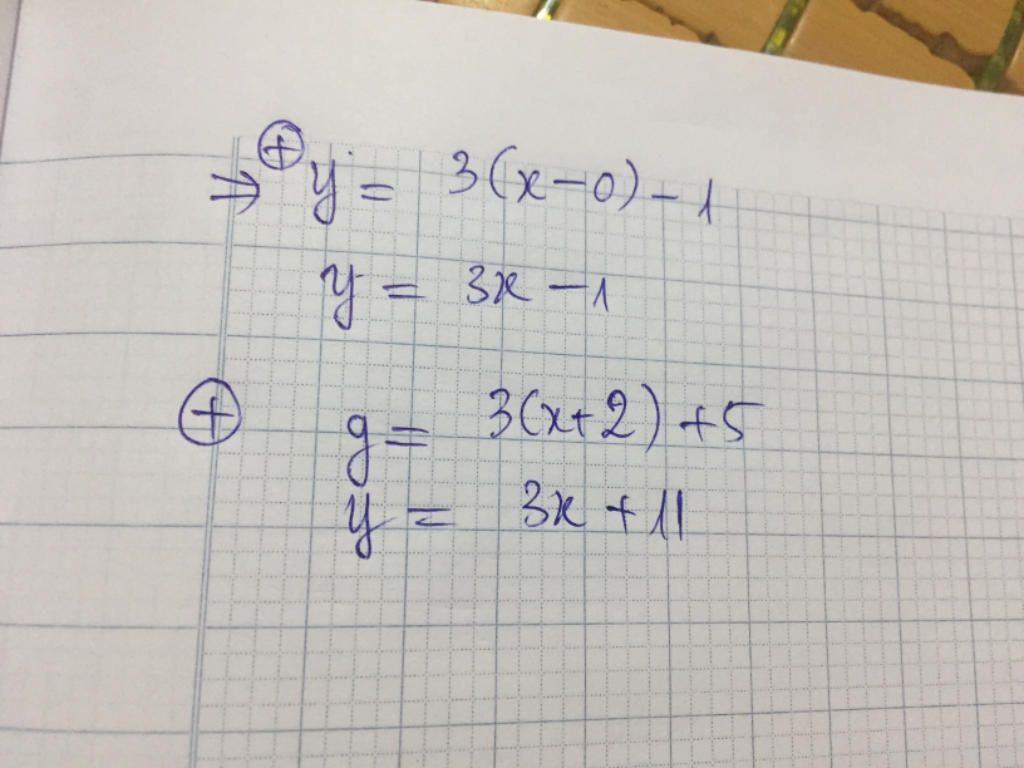 ⇒ ⊕ y = 3(x-0)-1
y = 3x-1
⊕ y = 3(x+2)+5
y = 3x+11